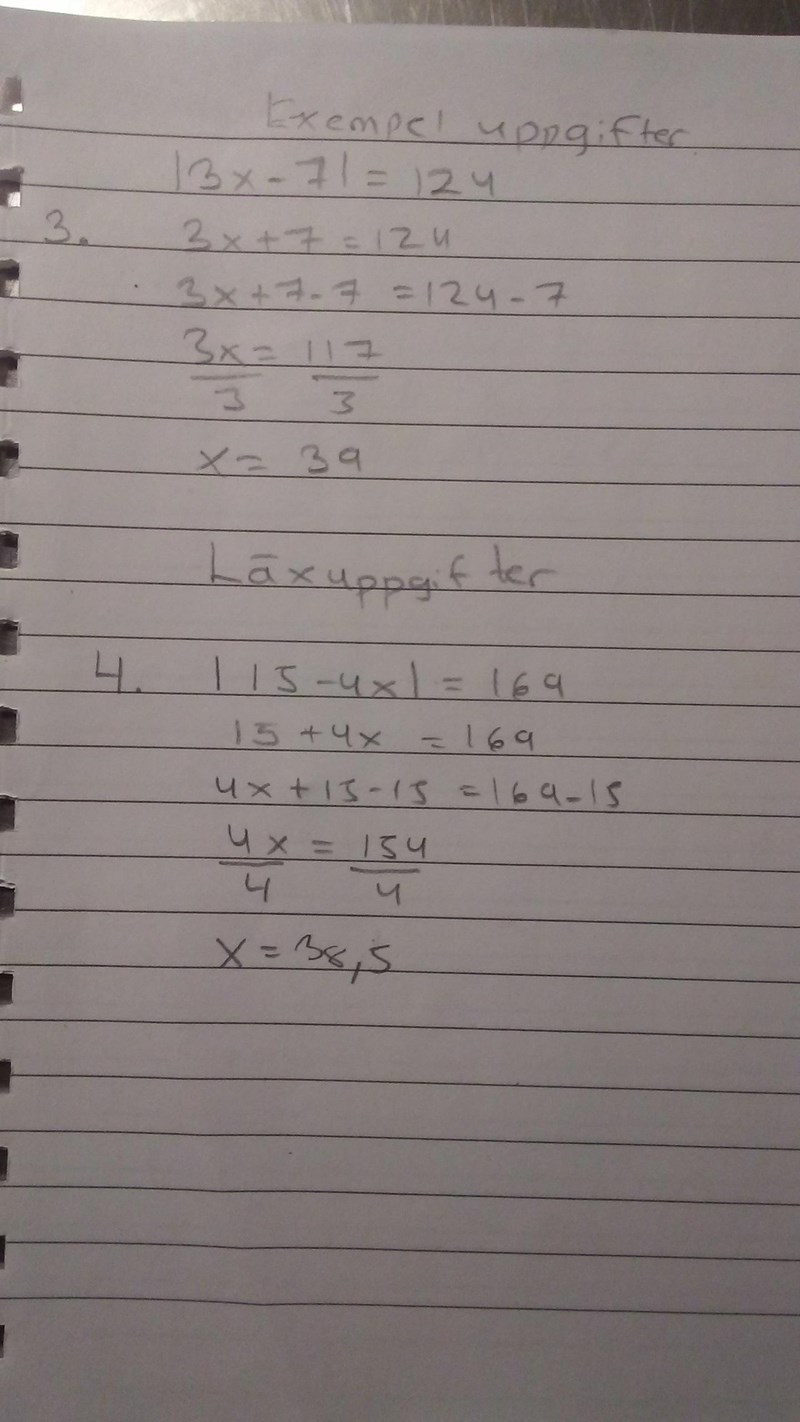 Exempel uppgifter
|3x-7| = 124
3. 3x+7 = 124
3x+7-7 = 124-7
3x = 117
3 3
x = 39
Läxuppgifter
4. |15-4x| = 169
15+4x = 169
4x+15-15 = 169-15
4x = 154
4 4
x = 38,5